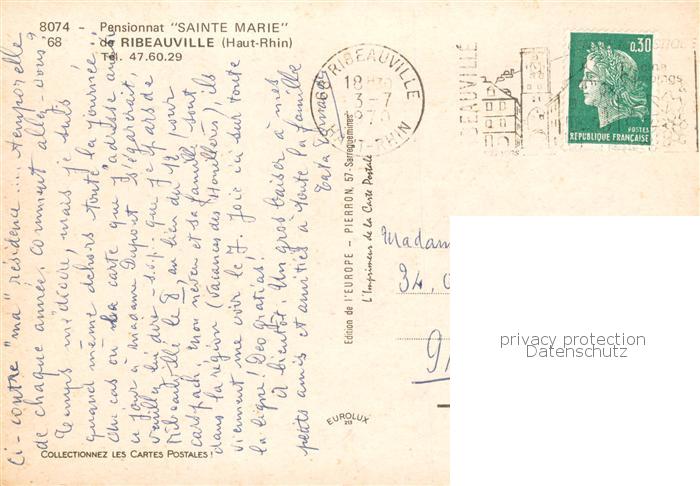 8074 - Pensionnat "SAINTE MARIE"
68 de RIBEAUVILLE (Haut-Rhin)
Tél. 47.60.29
Ci-contre "ma" résidence .... temporelle
de chaque année. Comment allez-vous?
Temps médiocre, mais je suis
quand même dehors toute la journée.
Au cas où la carte que j'adresse
ce jour à madame Dupont s'égarerait,
veuillez lui dire - s.v.p. que je pars de
Ribeauvillé le 8, au lieu du 12 pour
carspach. Mon neveu et sa famille sont
dans la région (Vacances des Houillères), ils
viennent me voir le 7. Joie ici sur toute
la ligne! Deo gratias!
à bientôt. Un gros baiser à mes
petits amis et amitiés à toute la famille
Tata
COLLECTIONNEZ LES CARTES POSTALES!
Edition de l'EUROPE - PIERRON, 57-Sarreguemines
L'Imprimeur de la Carte Postale
EUROLUX
RIBEAUVILLE
18H
3-7
RHIN
BEAUVILLÉ
0,30
POSTES
REPUBLIQUE FRANÇAISE
Madam
34,
privacy protection
Datenschutz